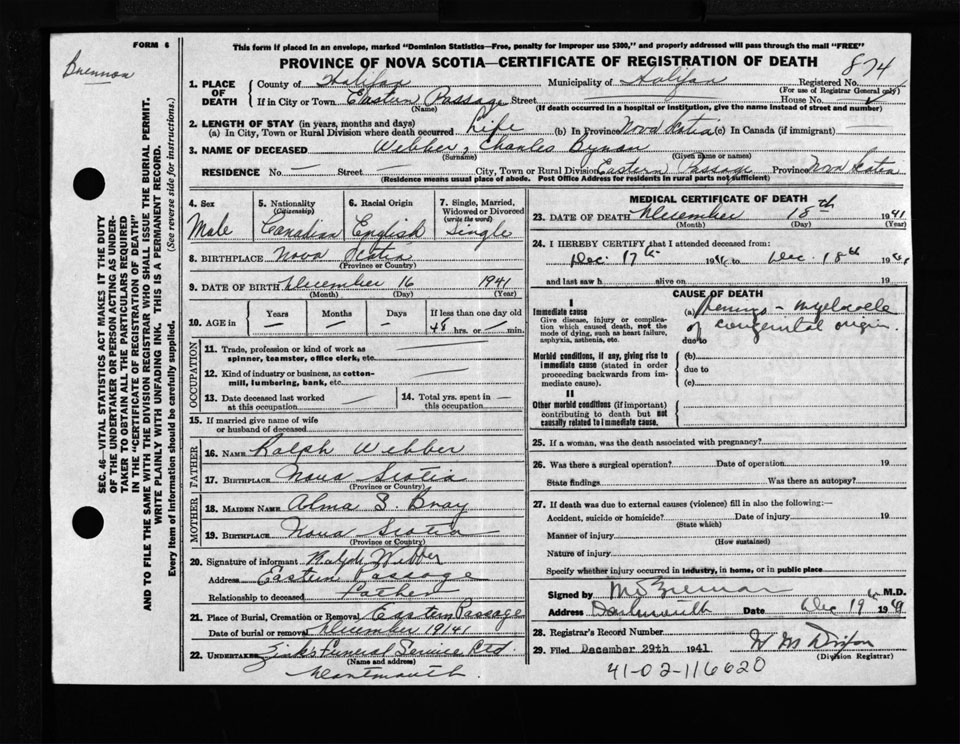 FORM 6
Brennan
This form if placed in an envelope, marked "Dominion Statistics—Free, penalty for improper use $300," and properly addressed will pass through the mail "FREE"
PROVINCE OF NOVA SCOTIA—CERTIFICATE OF REGISTRATION OF DEATH
874
1. PLACE OF DEATH County of Halifax Municipality of Halifax Registered No.
(For use of Registrar General only)
If in City or Town Eastern Passage Street House No.
(Name) (If death occurred in a hospital or institution, give the name instead of street and number)
2. LENGTH OF STAY (in years, months and days)
(a) In City, Town or Rural Division where death occurred Life (b) In Province Nova Scotia (c) In Canada (if immigrant) —
3. NAME OF DECEASED Webber, Charles
(Surname) (Given name or names)
RESIDENCE No. — Street — City, Town or Rural Division Eastern Passage Province Nova Scotia
(Residence means usual place of abode. Post Office Address for residents in rural parts not sufficient)
SEC. 46—VITAL STATISTICS ACT MAKES IT THE DUTY
OF THE UNDERTAKER OR PERSON ACTING AS UNDER-
TAKER TO OBTAIN ALL THE PARTICULARS REQUIRED
IN THE "CERTIFICATE OF REGISTRATION OF DEATH"
AND TO FILE THE SAME WITH THE DIVISION REGISTRAR WHO SHALL ISSUE THE BURIAL PERMIT.
WRITE PLAINLY WITH UNFADING INK. THIS IS A PERMANENT RECORD.
Every item of information should be carefully supplied. (See reverse side for instructions.)
4. Sex
Male
5. Nationality
(Citizenship)
Canadian
6. Racial Origin
English
7. Single, Married,
Widowed or Divorced
(write the word)
Single
8. BIRTHPLACE Nova Scotia
(Province or Country)
9. DATE OF BIRTH December 16 1941
(Month) (Day) (Year)
10. AGE in Years Months Days If less than one day old
— — — 48 hrs. or — min.
OCCUPATION
11. Trade, profession or kind of work as
spinner, teamster, office clerk, etc.
12. Kind of industry or business, as cotton-
mill, lumbering, bank, etc.
13. Date deceased last worked
at this occupation —
14. Total yrs. spent in
this occupation —
15. If married give name of wife
or husband of deceased
FATHER
16. NAME Ralph Webber
17. BIRTHPLACE Nova Scotia
(Province or Country)
MOTHER
18. MAIDEN NAME Alma S. Bray
19. BIRTHPLACE Nova Scotia
(Province or Country)
20. Signature of informant Ralph Webber
Address Eastern Passage
Relationship to deceased Father
21. Place of Burial, Cremation or Removal Eastern Passage
Date of burial or removal December 1941
22. UNDERTAKER Zink's Funeral Service Ltd.
(Name and address)
Dartmouth.
MEDICAL CERTIFICATE OF DEATH
23. DATE OF DEATH December 18th 1941
(Month) (Day) (Year)
24. I HEREBY CERTIFY that I attended deceased from:
Dec. 17th 1941 to Dec. 18th 1941
and last saw h alive on 19
CAUSE OF DEATH
I
Immediate cause
Give disease, injury or complica-
tion which caused death, not the
mode of dying, such as heart failure,
asphyxia, asthenia, etc.
(a) Meningo-myelocele
of congenital origin.
due to
Morbid conditions, if any, giving rise to
immediate cause (stated in order
proceeding backwards from im-
mediate cause).
(b)
due to
(c)
II
Other morbid conditions (if important)
contributing to death but not
causally related to immediate cause.
25. If a woman, was the death associated with pregnancy?
26. Was there a surgical operation? Date of operation 19
State findings Was there an autopsy?
27. If death was due to external causes (violence) fill in also the following:—
Accident, suicide or homicide? Date of injury 19
(State which)
Manner of injury
(How sustained)
Nature of injury
Specify whether injury occurred in industry, in home, or in public place
Signed by M Brennan M.D.
Address Dartmouth Date Dec 19 1941
28. Registrar's Record Number
29. Filed December 29th 1941
(Division Registrar)
41-02-116620